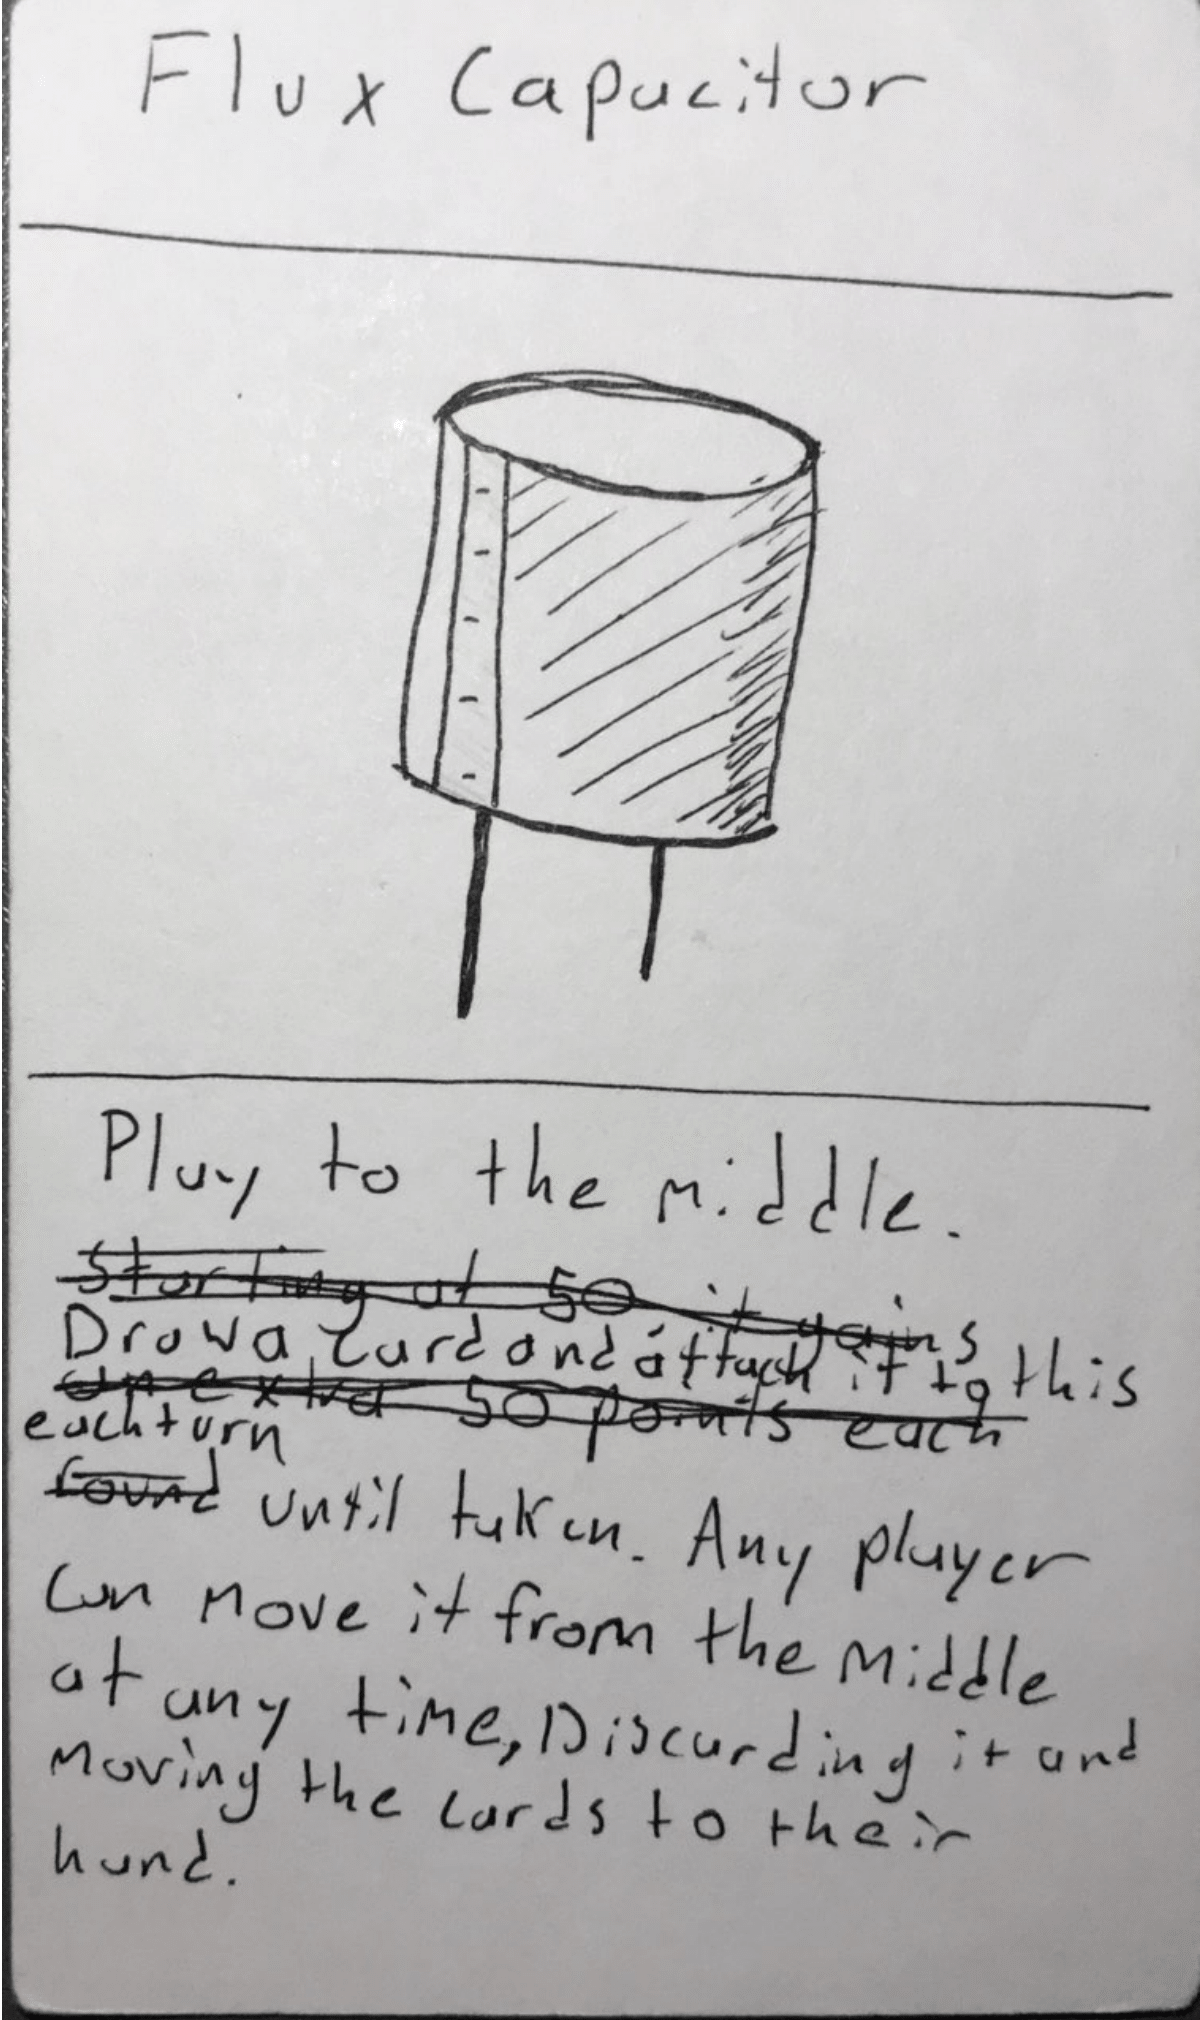 Flux Capacitor
Play to the middle.
Starting at 50 it gains
Draw a card and attach it to this
an extra 50 points each
each turn
round until taken. Any player
can move it from the middle
at any time, Discarding it and
moving the cards to their
hand.